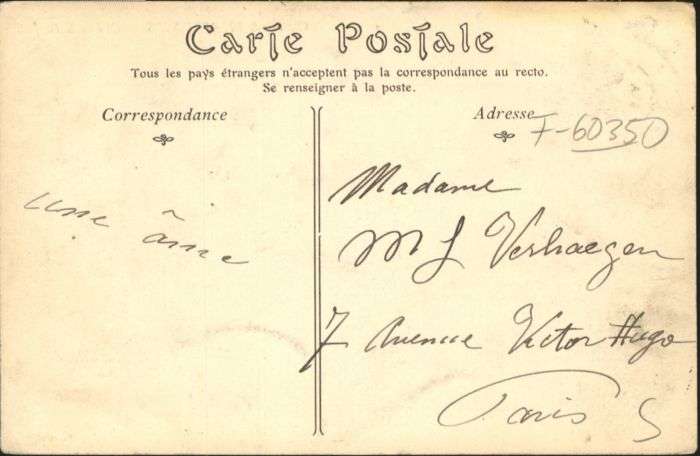 Carte Postale
Tous les pays étrangers n'acceptent pas la correspondance au recto.
Se renseigner à la poste.
Correspondance
Adresse
F-60350
une âme
Madame
M L Verhaegen
7 Avenue Victor Hugo
Paris